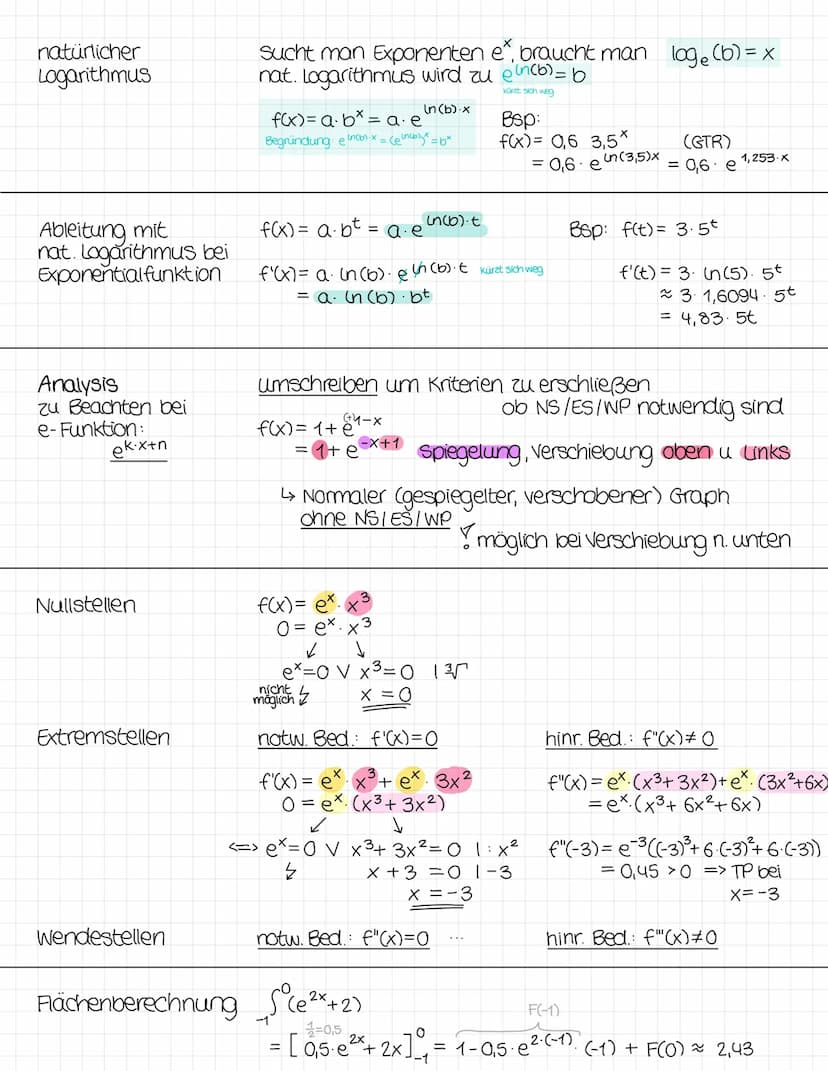 natürlicher
Logarithmus
Sucht man Exponenten eˣ, braucht man logₑ(b) = x
nat. Logarithmus wird zu e^(ln(b)) = b
kürzt sich weg
f(x) = a · bˣ = a · e^(ln(b)·x)
Begründung: e^(ln(b)·x) = (e^(ln(b)))ˣ = bˣ
Bsp:
f(x) = 0,6 3,5ˣ (GTR)
= 0,6 · e^(ln(3,5)x) = 0,6 · e^(1,253·x)
Ableitung mit
nat. Logarithmus bei
Exponentialfunktion
f(x) = a · bᵗ = a · e^(ln(b)·t)
f'(x) = a · ln(b) · e^(ln(b)·t) kürzt sich weg
= a · ln(b) · bᵗ
Bsp: f(t) = 3 · 5ᵗ
f'(t) = 3 · ln(5) · 5ᵗ
≈ 3 · 1,6094 · 5ᵗ
= 4,83 · 5t
Analysis
zu Beachten bei
e-Funktion:
e^(k·x+n)
umschreiben um Kriterien zu erschließen
ob NS/ES/WP notwendig sind
f(x) = 1 + e^((+)1-x)
= 1 + e^(-x+1) Spiegelung, Verschiebung oben u Links
↳ Normaler (gespiegelter, verschobener) Graph
ohne NS/ES/WP
! möglich bei Verschiebung n. unten
Nullstellen
f(x) = eˣ · x³
0 = eˣ · x³
↙ ↘
eˣ = 0 ∨ x³ = 0 | ³√
nicht
möglich ↯ x = 0
Extremstellen
notw. Bed.: f'(x) = 0
f'(x) = eˣ · x³ + eˣ · 3x²
0 = eˣ · (x³ + 3x²)
↙ ↘
<=> eˣ = 0 ∨ x³ + 3x² = 0 | : x²
↯ x + 3 = 0 | -3
x = -3
hinr. Bed.: f''(x) ≠ 0
f''(x) = eˣ · (x³ + 3x²) + eˣ · (3x² + 6x)
= eˣ · (x³ + 6x² + 6x)
f''(-3) = e⁻³((-3)³ + 6 · (-3)² + 6 · (-3))
= 0,45 > 0 => TP bei
x = -3
Wendestellen
notw. Bed.: f''(x) = 0 ...
hinr. Bed.: f'''(x) ≠ 0
Flächenberechnung
₋₁∫⁰ (e^(2x) + 2)
½ = 0,5
F(-1)
= [0,5 · e^(2x) + 2x]⁰₋₁ = 1 - 0,5 · e^(2·(-1)) · (-1) + F(0) ≈ 2,43